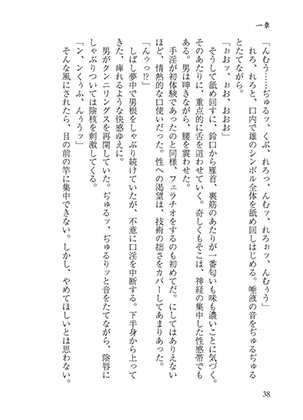 一章
38
「んむぅ……ぢゅるッ、くぷ、れろっ、んむぅう」
れろっ、れろっと、口内で雄のシンボル全体を舐め回しはじめる。唾液の音をぢゅるぢゅる
とたてながら。
「ぉおッ、ぉお、おおお」
そうして舐め回すに、鈴口から雁首、裏筋のあたりが一番匂いも味も濃いことに気づく。
そのあたりに、重点的に舌を這わせていく。奇しくもそこは、神経の集中した性感帯でも
ある。男は呻きながら、腰を震わせた。
手淫が初体験であったのと同様、フェラチオをするのも初めてだ。にしてはありえない
ほど、情熱的な口使いだった。性への渇望は、技術の拙さをカバーしてあまりあった。
「んぅっ!?」
しばし夢中で男根をしゃぶり続けていたが、不意に口淫を中断する。下半身から上って
きた、痺れるような快感ゆえに。
男がクンニリングスを再開していた。ぢゅるッ、ぢゅるりッと音をたてながら、陰唇に
しゃぶりついては陰核を刺激してくる。
「ン、ンくぅふ、んぅうッ」
そんな風にされたら、目の前の竿に集中できない。しかし、やめてほしいとは思わない。